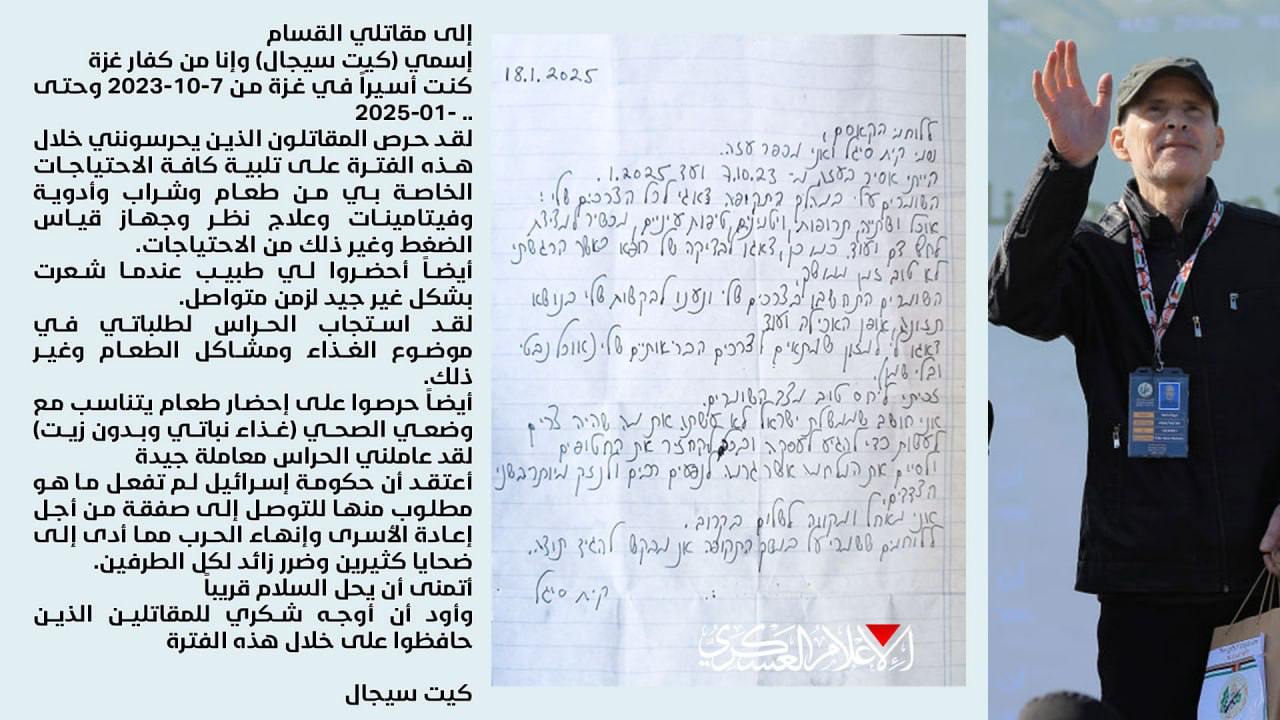 إلى مقاتلي القسام
إسمي (كيت سيجال) وإنا من كفار غزة
كنت أسيراً في غزة من 7-10-2023 وحتى
.. -01-2025
لقد حرص المقاتلون الذين يحرسونني خلال
هذه الفترة على تلبية كافة الاحتياجات
الخاصة بي من طعام وشراب وأدوية
وفيتامينات وعلاج نظر وجهاز قياس
الضغط وغير ذلك من الاحتياجات.
أيضاً أحضروا لي طبيب عندما شعرت
بشكل غير جيد لزمن متواصل.
لقد استجاب الحراس لطلباتي في
موضوع الغذاء ومشاكل الطعام وغير
ذلك.
أيضاً حرصوا على إحضار طعام يتناسب مع
وضعي الصحي (غذاء نباتي وبدون زيت)
لقد عاملني الحراس معاملة جيدة
أعتقد أن حكومة إسرائيل لم تفعل ما هو
مطلوب منها للتوصل إلى صفقة من أجل
إعادة الأسرى وإنهاء الحرب مما أدى إلى
ضحايا كثيرين وضرر زائد لكل الطرفين.
أتمنى أن يحل السلام قريباً
وأود أن أوجه شكري للمقاتلين الذين
حافظوا على خلال هذه الفترة
كيت سيجال
18.1.2025
ללוחמי הקאסם,
שמי קית סיגל ואני מכפר עזה.
הייתי אסיר בעזה מ- 7.10.23 ועד .1.2025
השומרים עלי במהלך התקופה דאגו לכל הצרכים שלי:
אוכל ושתייה, תרופות, ויטמינים, טיפות עיניים, מכשיר למדידת
לחץ דם ועוד. כמו כן, דאגו לבדיקה של רופא כאשר הרגשתי
לא טוב זמן ממושך.
השומרים התחשבו בצרכים שלי ונענו לבקשות שלי בנושא
תזונה, אופן האכילה ועוד
דאגו לי למזון שמתאים לצרכים הבריאותיים שלי (אוכל נבטי
ובלי שמן).
זכיתי ליחס טוב מצד השומרים.
אני חושב שממשלת ישראל לא עשתה את מה שהיה צריך
לעשות כדי להגיע לעסקה להחזיר את החטופים
ולסיים את המלחמה אשר גרמה לנפגעים רבים ולנזק מיותר בשני
הצדדים.
אני מאחל ומקווה לשלום בקרוב.
ללוחמים ששמרו עלי במשך התקופה אני מבקש להגיד תודה.
קית סיגל
الإعلام العسكري